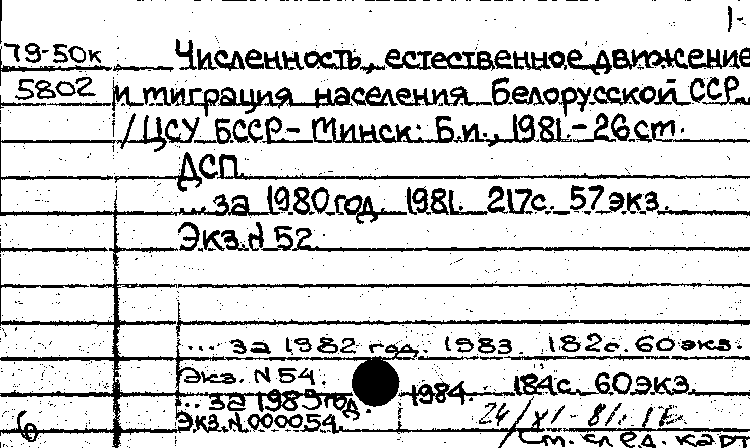 1-
79-50к Численность, естественное движение
5802 и миграция населения Белорусской ССР.
/ЦСУ БССР.- Минск: Б.и., 1981.- 26см.
ДСП.
...за 1980 год. 1981. 217с. 57 экз.
Экз. N 52.
... за 1982 год. 1983. 182с. 60 экз.
Экз. N 54.
... за 1983 год. 1984. 184с. 60 экз.
Экз. N 000054. 24/XI-81г.
б См. след. карт